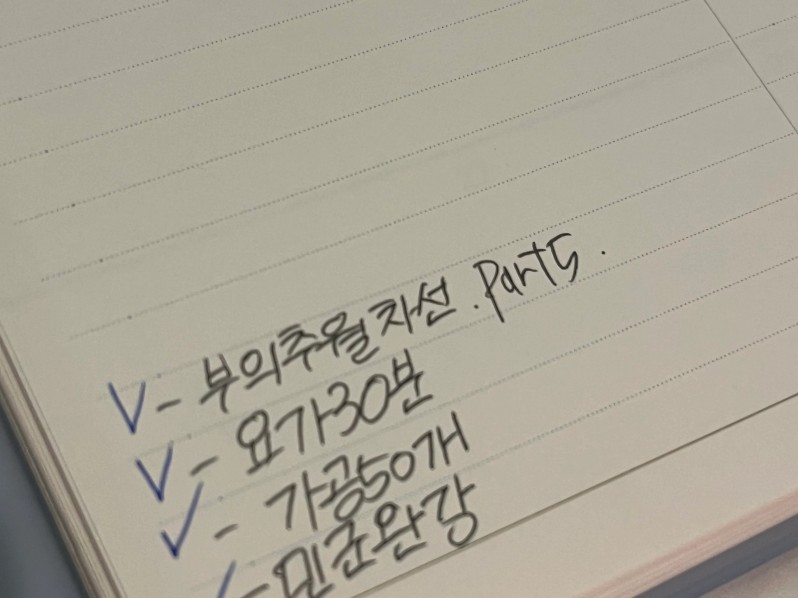 V- 부의추월차선 .Part5.
V- 요가30분
V- 가공50개
V-민균완강